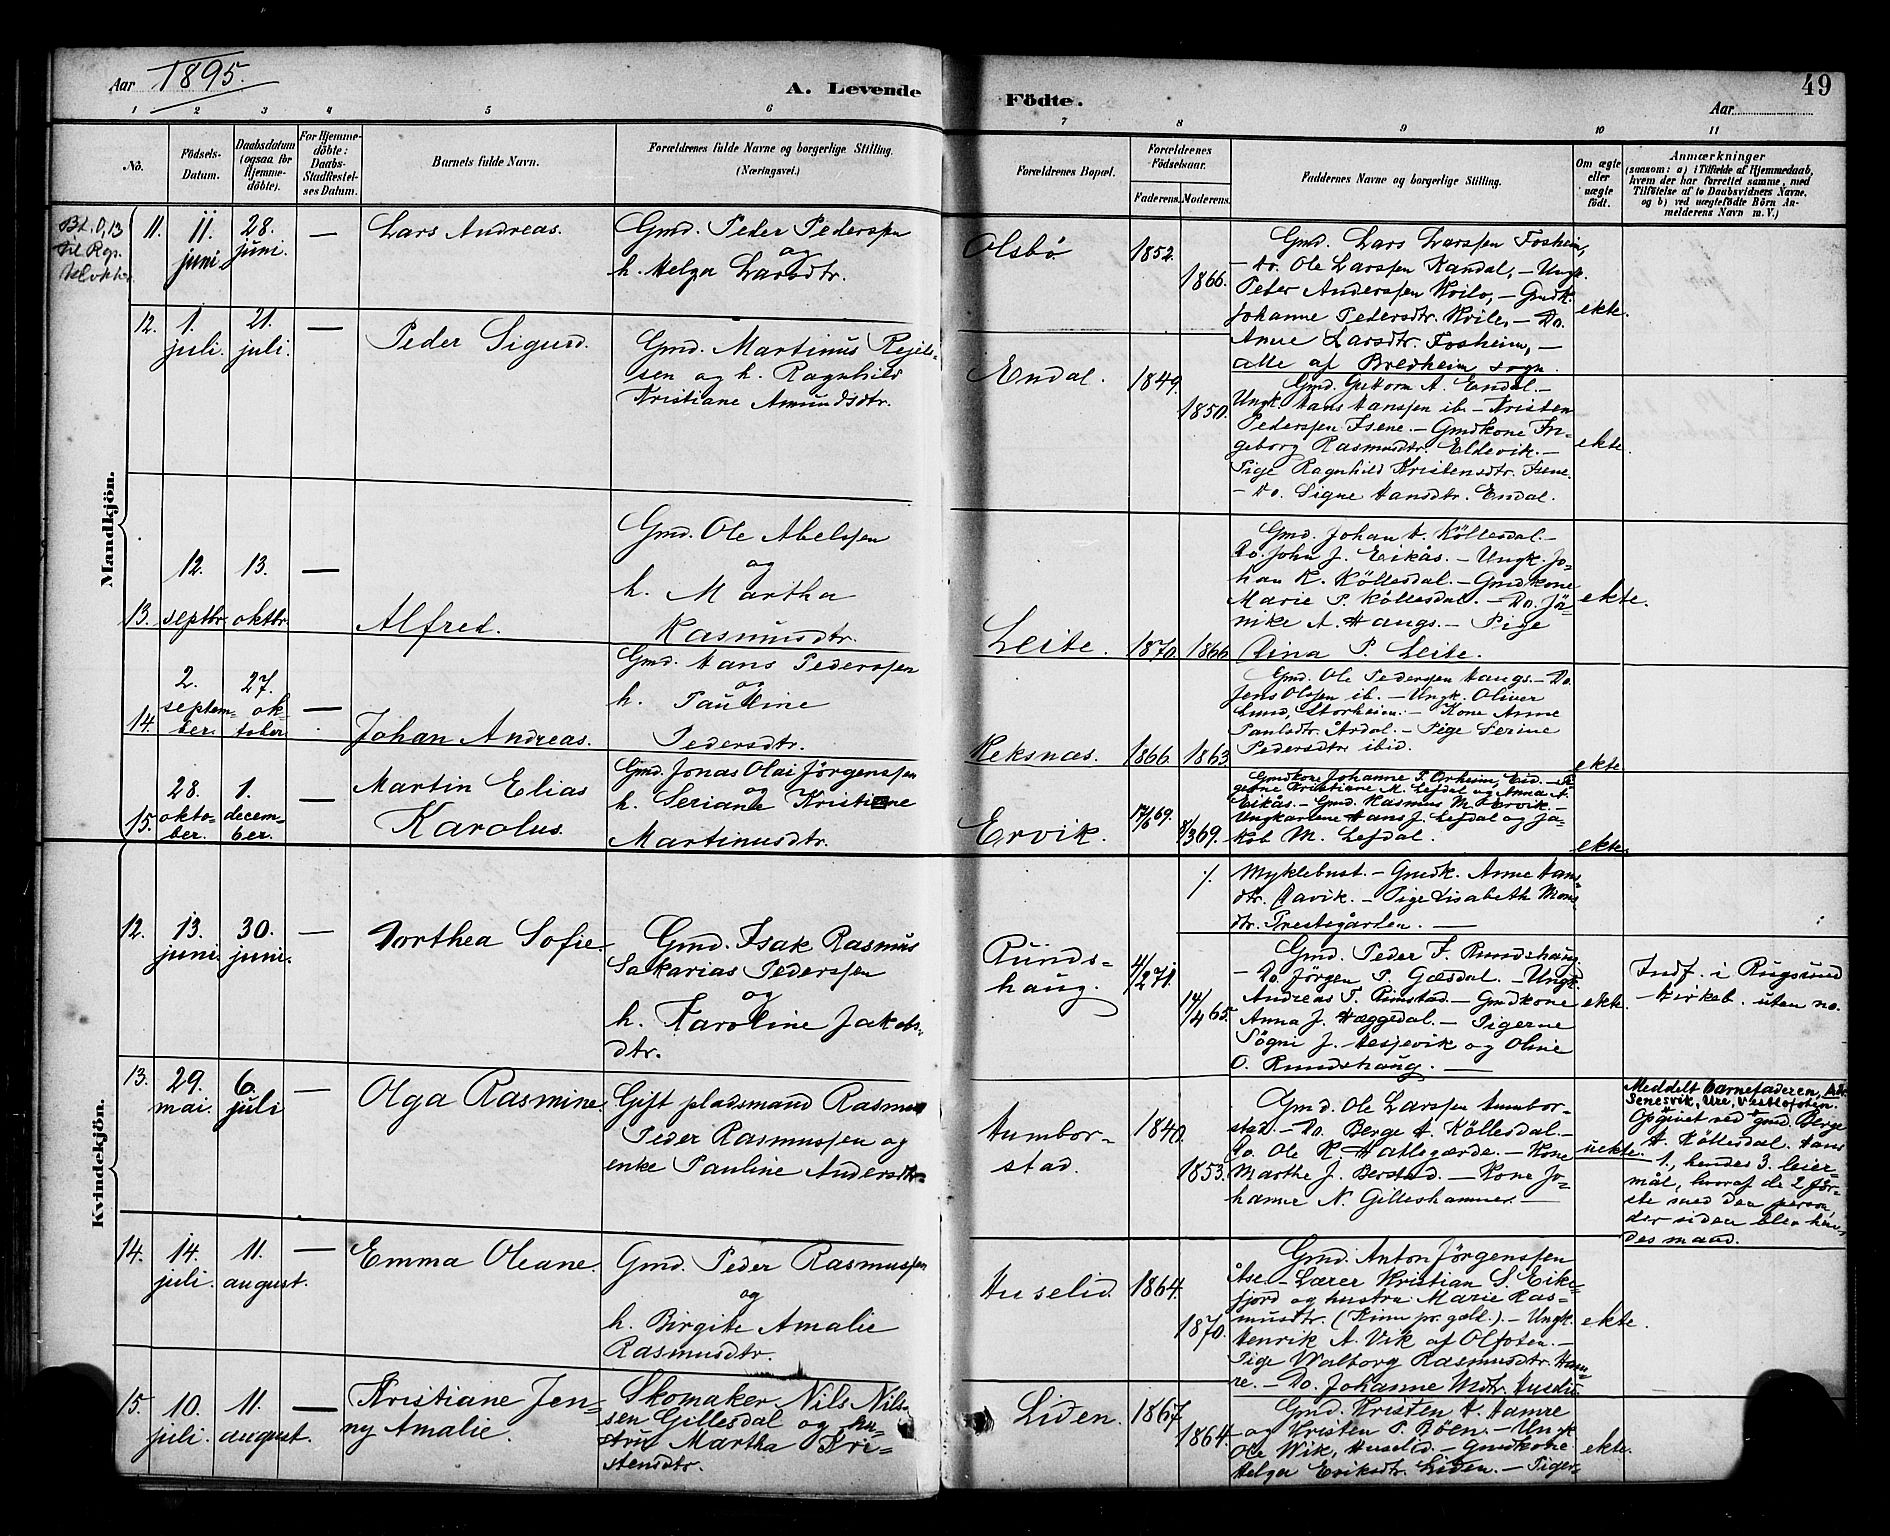 Aar 1895.
A. Levende
Födte.
Aar
49
1 2 3 4 5 6 7 8 9 10 11
No.
Födsels-
Datum.
Daabsdatum
(ogsaa for
Hjemme-
döbte).
For Hjemme-
döbte:
Daabs-
Stadfæstel-
ses Datum.
Barnets fulde Navn.
Forældrenes fulde Navne og borgerlige Stilling.
(Næringsvei.)
Forældrenes Bopæl.
Forældrenes
Födselsaar.
Faderens.
Moderens.
Faddernes Navne og borgerlige Stilling.
Om ægte
eller
uægte
født.
Anmærkninger
(saasom: a) i Tilfælde af Hjemmedaab,
hvem der har forrettet samme, med
Tilföielse af to Daabsvidners Navne.
og b) ved uægtefödte Börn An-
melderens Navn m. V.)
Mandkjön.
11.
11.
juni.
28.
juni.
—
Lars Andreas.
Gmd. Peder Pederssen
og
h. Helga Larsdtr.
Olsbø
1852.
1866.
Gmd. Lars Larssen Fosheim,
- Do. Ole Larssen Kandal, - Ungk.
Peter Anderssen Kvile, - Gmdk.
Johanne Pedersdtr. Kvile - Do.
Anne Larsdtr. Fosheim, -
alle af Bredheim sogn.
ekte.
12.
1.
juli.
21.
juli.
—
Peder Sigurd.
Gmd. Martinus Rejel-
sen og h. Ragnhild
Kristiane Amundsdtr.
Endal.
1849.
1850.
Gmd. Guttorm A. Endal. -
Ungk. Hans Hanssen ib. - Kristen
Pederssen Isene. - Gmdkone In-
geborg Rasmusdtr. Eldevik. -
Pige Ragnhild Kristensdtr. Isene.
- Do. Signe Hansdtr. Endal.
ekte.
13.
12.
septbr.
13.
oktbr.
—
Alfred.
Gmd. Ole Abelssen
og
h. Martha
Rasmusdtr.
Leite.
1870.
1866.
Gmd. Johan A. Köllesdal. -
Do. John J. Eikås. - Ungk. Jo-
han K. Köllesdal. - Gmdkone
Marie P. Köllesdal. - Do. Jä-
nike A. Haugs. - Pige
Dina P. Leite.
ekte.
14.
2.
septem-
ber.
27.
ok-
tober
—
Johan Andreas.
Gmd. Hans Pederssen
og
h. Pauline
Pedersdtr.
Reksnæs.
1866.
1863.
Gmd. Ole Pederssen Haugs. - Do.
Jens Olssen ib. - Ungk. Oliver
Lund, Storheim. - Kone Anne
Paulsdtr. Årdal. - Pige Serine
Pedersdtr. ibid.
ekte.
15.
28.
okto-
ber.
1.
decem-
ber.
—
Martin Elias
Karolus.
Gmd. Jonas Olai Jörgenssen
og
h. Seriane Kristiane
Martinusdtr.
Ervik.
17/6 69.
7/3 69.
Gmdkone Johanne P. Orheim, Eid. - Pi-
gerne Kristiane M. Lefdal og Anna A.
Eikås. - Gmd. Rasmus M. Ervik. -
Ungkarlene Hans J. Lefdal og Ja-
kob M. Lefdal.
ekte.
Kvindekjön.
Myklebust. - Gmdk. Anne Hans-
dtr. Davik. - Pige Lisabeth Mons-
dtr. Prestegården. —
12.
13.
juni.
30.
juni.
—
Dorthea Sofie.
Gmd. Isak Rasmus
Sakarias Pederssen
og
h. Karoline Jakobs-
dtr.
Runds-
haug.
4/2 71.
14/4 65.
Gmd. Peder F. Rundshaug.
- Do. Jörgen P. Gæsdal. - Ungk.
Andreas P. Rimstad. - Gmdkone
Anna J. Hæggedal. - Pigerne
Sögni J. Hesjevik og Oline
O. Rundshaug. —
ekte.
Indf. i Rugsund
kirkeb. uten no.
13.
29.
mai.
6.
juli
—
Olga Rasmine.
Gift pladsmand Rasmus
Peder Rasmussen og
enke Pauline Andersdtr.
Humbor-
stad.
1840.
1853.
Gmd. Ole Larssen Humbor-
stad. - Do. Berge A. Köllesdal. -
Do. Ole K. Hatlegærde. - Kone
Marthe J. Berstad. - Kone Jo-
hanne N. Gilleshammer. —
uekte.
Meddelt barnefaderen,
Senesvik, Ure, Vestlofoten.
Opgivet ved gmd. Berge
A. Köllesdal. Hans
1., hendes 3. leier-
mål, hvoraf de 2 för-
ste med den person,
der siden blev hen-
des mand.
14.
14.
juli.
11.
august.
—
Emma Oleane.
Gmd. Peder Rasmussen
og
h. Birgite Amalie
Rasmusdtr.
Huselid.
1864.
1870.
Gmd. Anton Jörgenssen
Åse. - Lærer Kristian S. Eike-
fjord og hustru Marie Ras-
musdtr. (Kinn pr.gæld.). - Ungk.
Henrik A. Vik af Olfoten. -
Pige Walborg Rasmusdtr. Ham-
re. - Do. Johanne Mdtr. Huselid
ekte.
15.
10.
juli.
11.
august.
—
Kristiane Jen-
ny Amalie.
Skomaker Nils Nils-
sen Gillesdal og hu-
stru Martha Kri-
stensdtr.
Liden.
1867.
1864.
Gmd. Kristen A. Hamre
- og Kristen P. Böen. - Ungk.
Ole Wik, Huselid. - Gmdkone
Helga Eriksdtr. Liden. - Piger-
ekte.